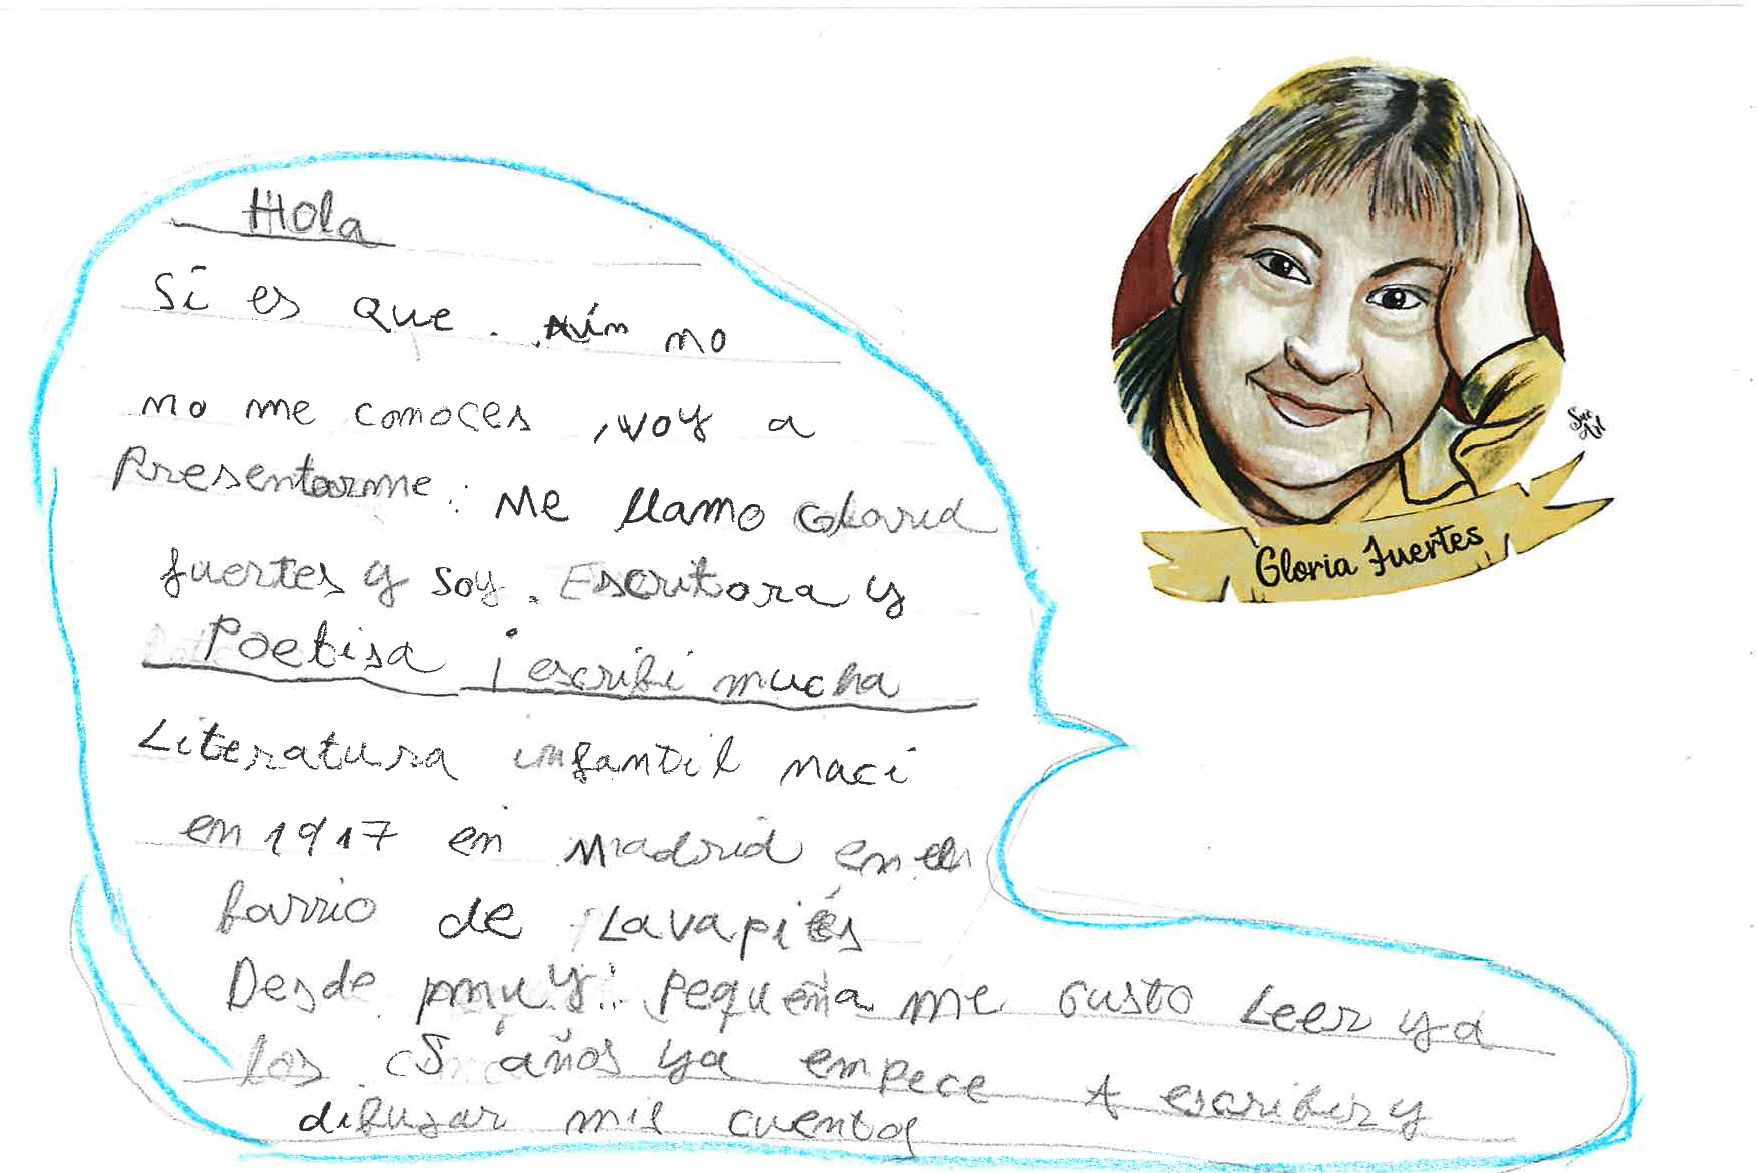 Hola
Si es que. Aún no
no me conoces, voy a
Presentarme. Me llamo Gloria
fuertes y soy. Escritora y
Poetisa ¡ escribi mucha
Literatura infantil naci
en 1917 en Madrid en el
barrio de Lavapiés
Desde muy pequeña me Gusto Leer y a
los 5 años ya empece A escribir y
dibujar mis cuentos
Gloria Fuertes